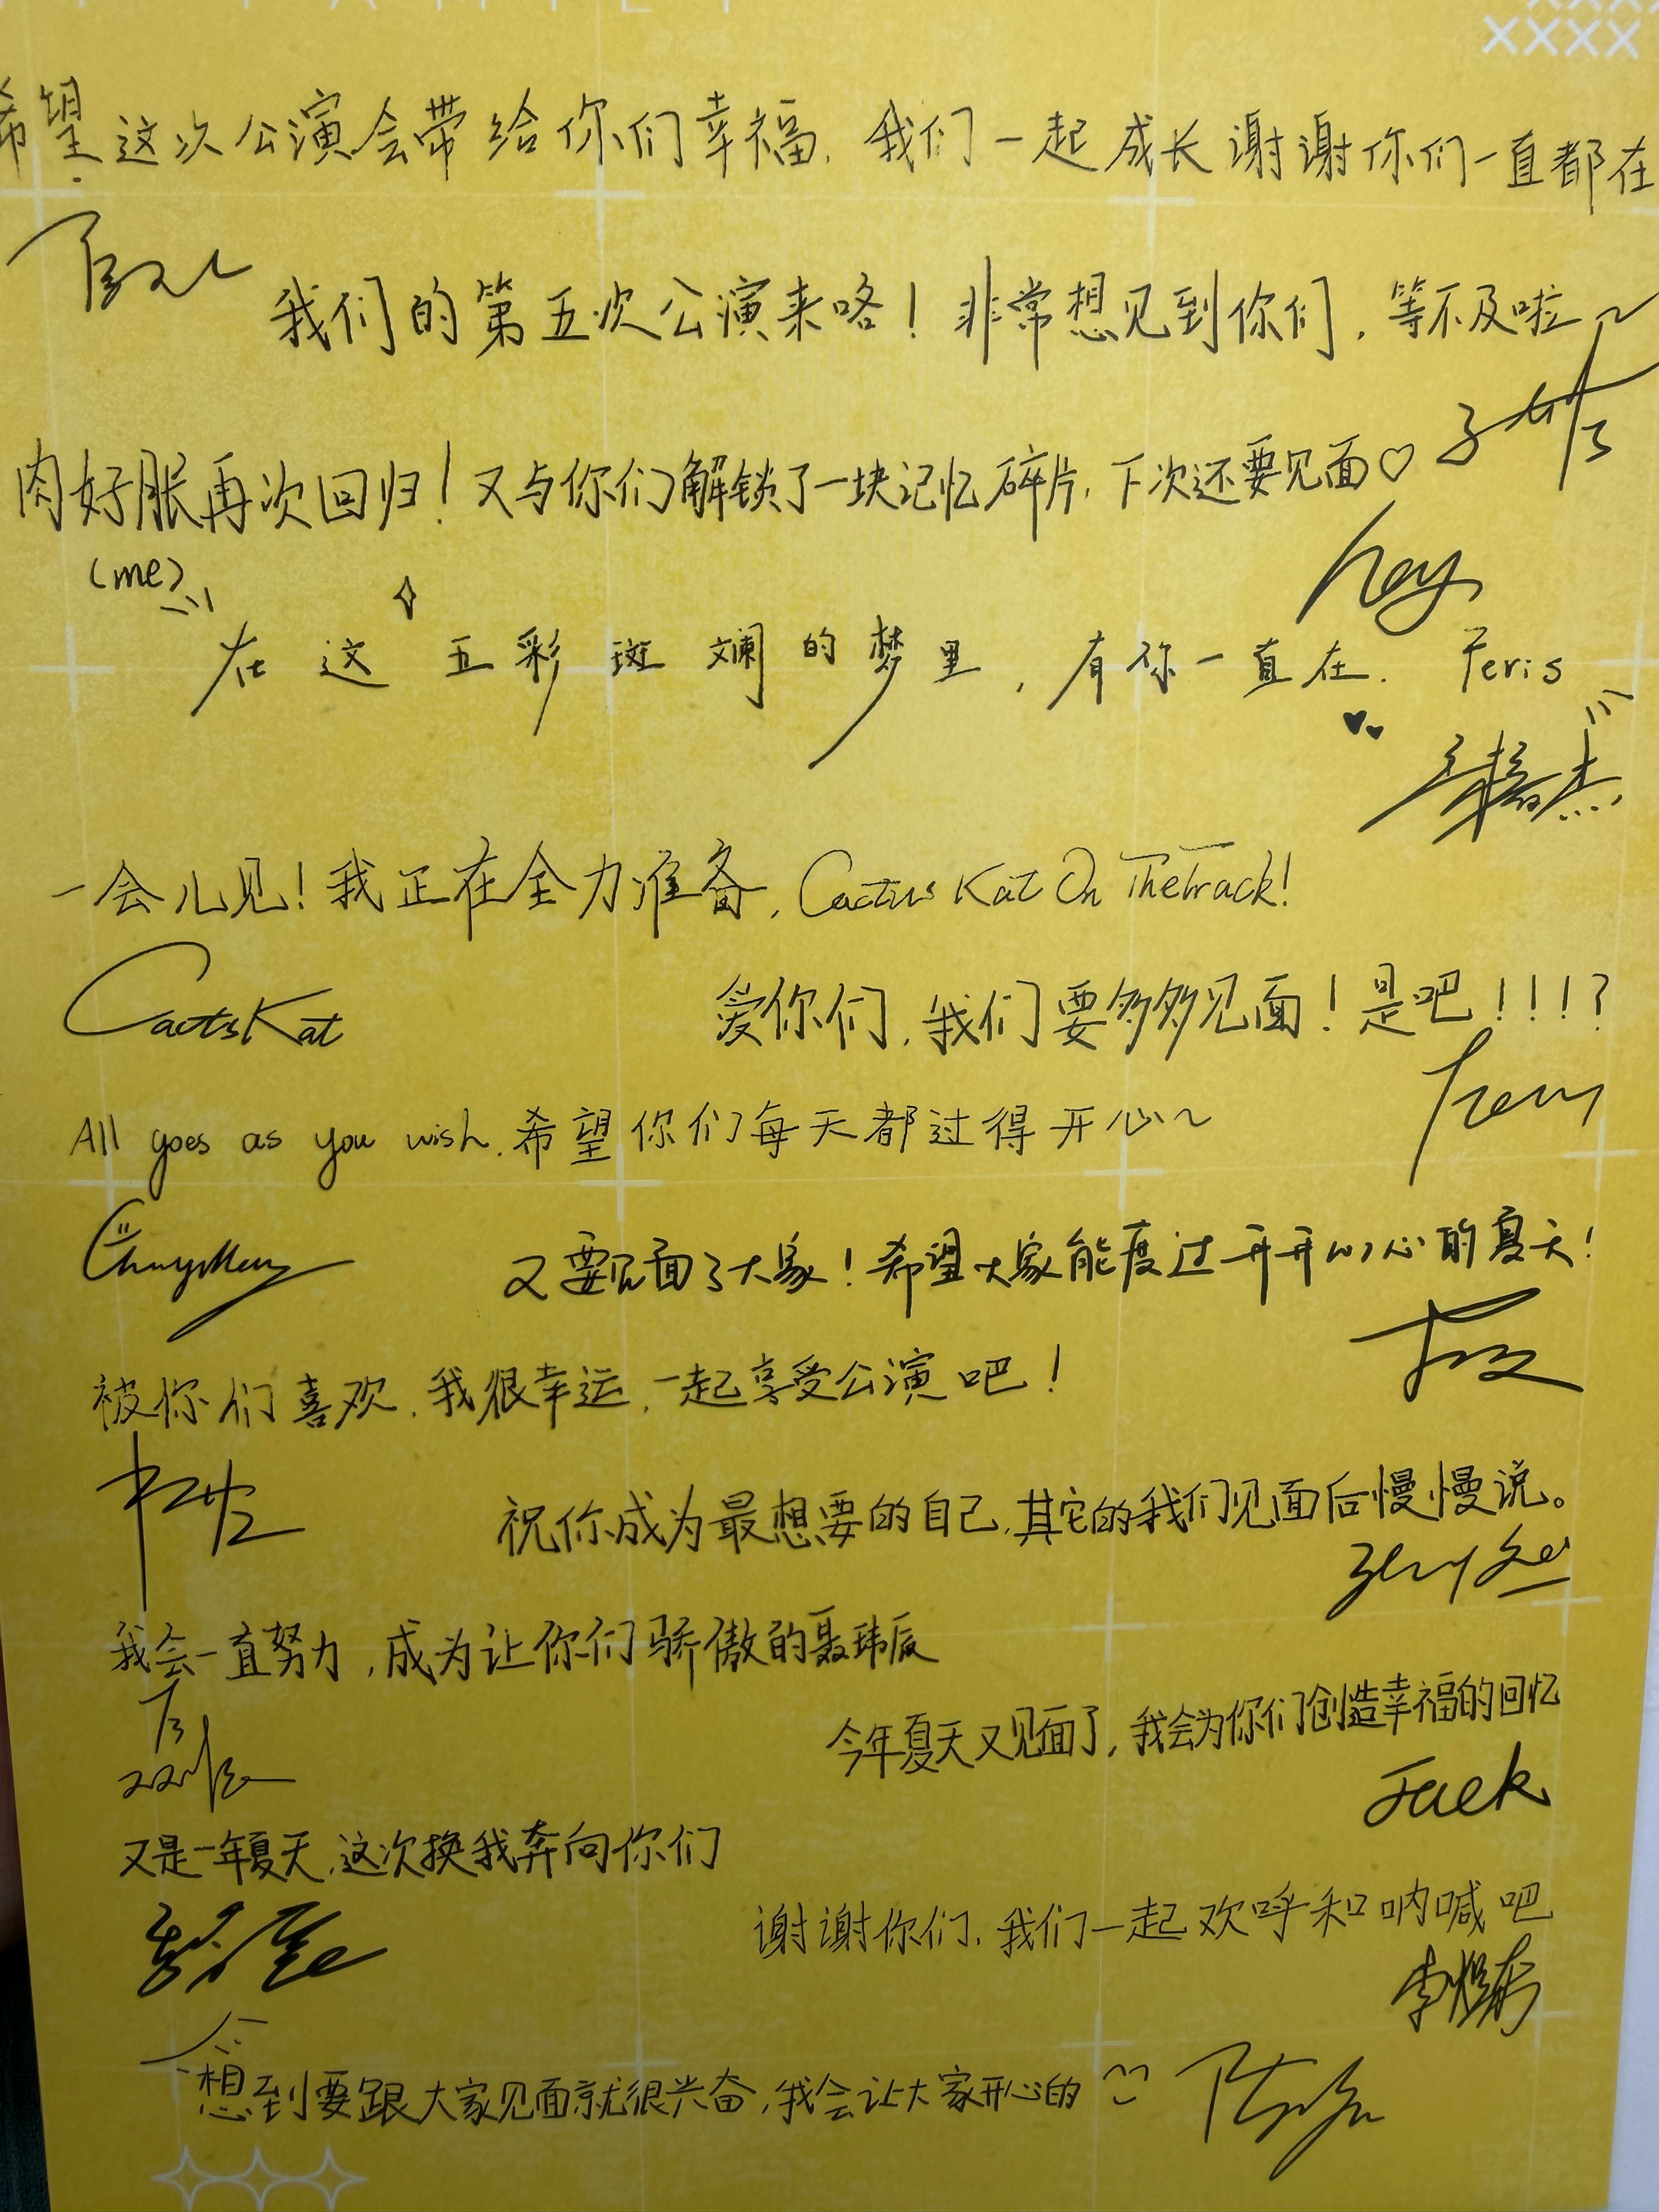 希望这次公演会带给你们幸福，我们一起成长谢谢你们一直都在
我们的第五次公演来咯！非常想见到你们，等不及啦~
肉好胀再次回归！又与你们解锁了一块记忆碎片，下次还要见面♡
(me)
在这五彩斑斓的梦里，有你一直在. Feris
一会儿见！我正在全力准备，Cactus Kat On The track!
Cactus Kat
爱你们，我们要多多见面！是吧！！！？
All goes as you wish.希望你们每天都过得开心~
又要见面了大家！希望大家能度过开开心心的夏天！
被你们喜欢，我很幸运，一起享受公演吧！
祝你成为最想要的自己，其它的我们见面后慢慢说。
我会一直努力，成为让你们骄傲的聂玮辰
今年夏天又见面了，我会为你们创造幸福的回忆
Jack
又是一年夏天，这次换我奔向你们
谢谢你们，我们一起欢呼和呐喊吧
想到要跟大家见面就很兴奋，我会让大家开心的